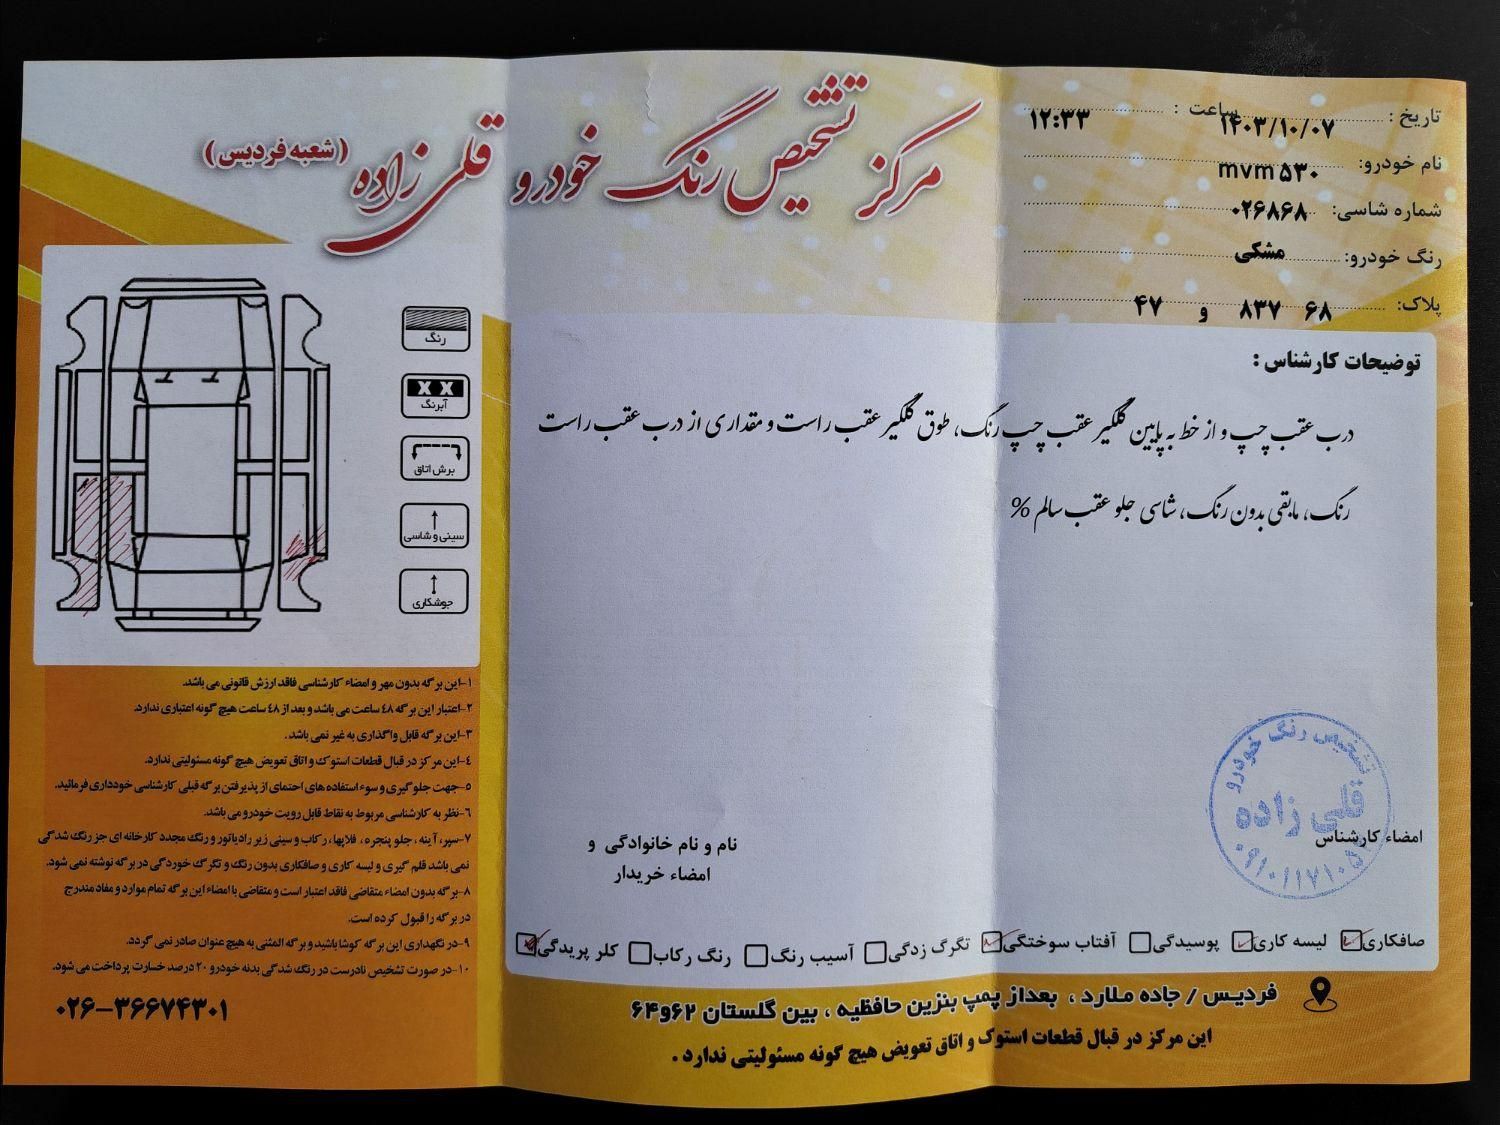 مرکز تشخیص رنگ خودرو قلی زاده (شعبه فردیس)
تاریخ : ۱۴۰۳/۱۰/۰۷ ساعت : ۱۲:۳۳
نام خودرو: mvm ۵۳۰
شماره شاسی: ۰۲۶۸۶۸
رنگ خودرو: مشکی
پلاک: ۶۸ ۸۳۷ و ۴۷
توضیحات کارشناس :
درب عقب چپ و از خط به پایین گلگیر عقب چپ رنگ، طوق گلگیر عقب راست و مقداری از درب عقب راست
رنگ، مابقی بدون رنگ، شاسی جلو عقب سالم %
رنگ
X X
آبرنگ
برش اتاق
سینی و شاسی
جوشکاری
۱-این برگه بدون مهر و امضاء کارشناسی فاقد ارزش قانونی می باشد.
۲-اعتبار این برگه ٤٨ ساعت می باشد و بعد از ٤٨ ساعت هیچ گونه اعتباری ندارد.
۳-این برگه قابل واگذاری به غیر نمی باشد .
۴-این مرکز در قبال قطعات استوک و اتاق تعویض هیچ گونه مسئولیتی ندارد.
۵-جهت جلوگیری و سوء استفاده های احتمای از پذیرفتن برگه قبلی کارشناسی خودداری فرمائید.
۶-نظر به کارشناسی مربوط به نقاط قابل رویت خودرو می باشد.
۷-سپر، آینه ، جلو پنجره ، قلابها، رکاب و سینی زیر رادیاتور و رنگ مجدد کارخانه ای جز رنگ شدگی
نمی باشد قلم گیری و لیسه کاری و صافکاری بدون رنگ و تگرگ خوردگی در برگه نوشته نمی شود.
۸-برگه بدون امضاء متقاضی فاقد اعتبار است و متقاضی با امضاء این برگه تمام موارد و مفاد مندرج
در برگه را قبول کرده است.
۹-در نگهداری این برگه کوشا باشید و برگه المثنی به هیچ عنوان صادر نمی گردد.
۱۰-در صورت تشخیص نادرست در رنگ شدگی بدنه خودرو ۲۰ درصد خسارت پرداخت می شود.
۰۲۶-۳۶۶۷۴۳۰۱
نام و نام خانوادگی و
امضاء خریدار
امضاء کارشناس
تشخیص رنگ خودرو
قلی زاده
صافکاری لیسه کاری پوسیدگی آفتاب سوختگی تگرگ زدگی آسیب رنگ رنگ رکاب کلر پریدگی
فردیس / جاده ملارد ، بعداز پمپ بنزین حافظیه ، بین گلستان ۶۲و۶۴
این مرکز در قبال قطعات استوک و اتاق تعویض هیچ گونه مسئولیتی ندارد .